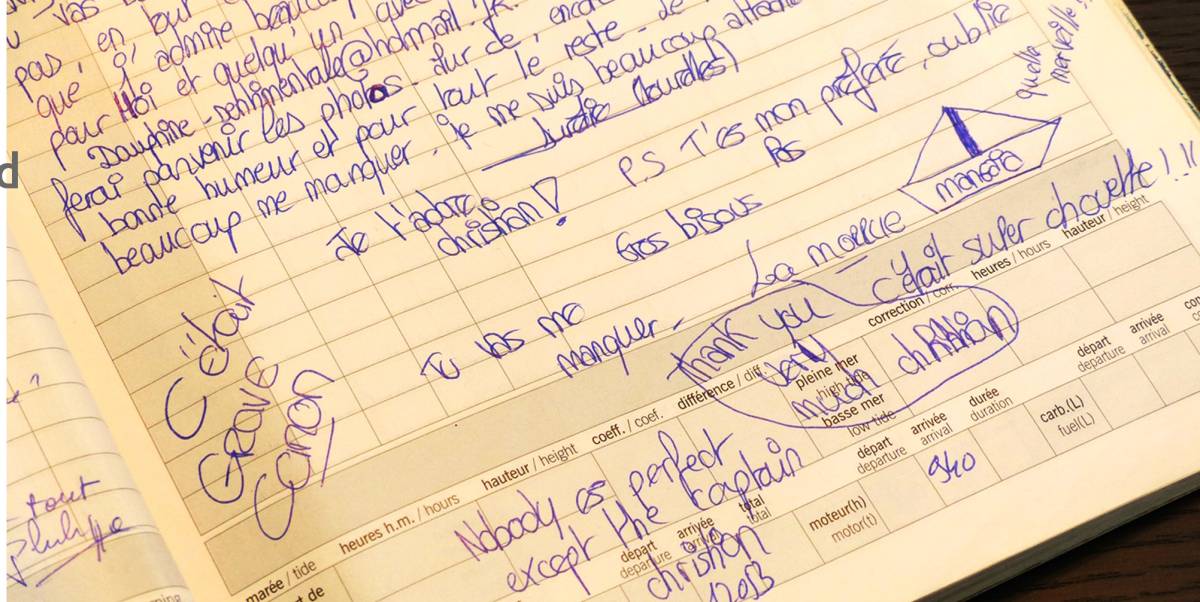 vas
en tout
pas, j'admire beaucoup
que Moi et quelqu'un avec
pour Dauphine-sentimentale@hotmail.fr
ferai parvenir les photos. sur de, encore
bonne humeur et pour tout le reste. de
beaucoup me manquer. je me suis beaucoup attaché
Je t'adore
christian!
P.S T'es mon préféré, oublie
Pas
quelle
merveille!!
mansaia
Gros bisous
La morue
c'était super chouette!!!
Tu vas me
manquer.
C'était
GRAVE
Canon
Thank you
very
much christian
correction / corr. heures / hours hauteur / height
marée / tide heures h.m. / hours hauteur / height coeff. / coef. différence / diff. pleine mer
high tide
basse mer
low tide
Nobody is perfect
except the Kaptain
christian
départ
departure
arrivée
arrival
total
total
moteur(h)
motor(t)
départ
departure
arrivée
arrival
durée
duration
940
carb.(L)
fuel(L)
départ
departure
arrivée
arrival
tout
Philippe
d